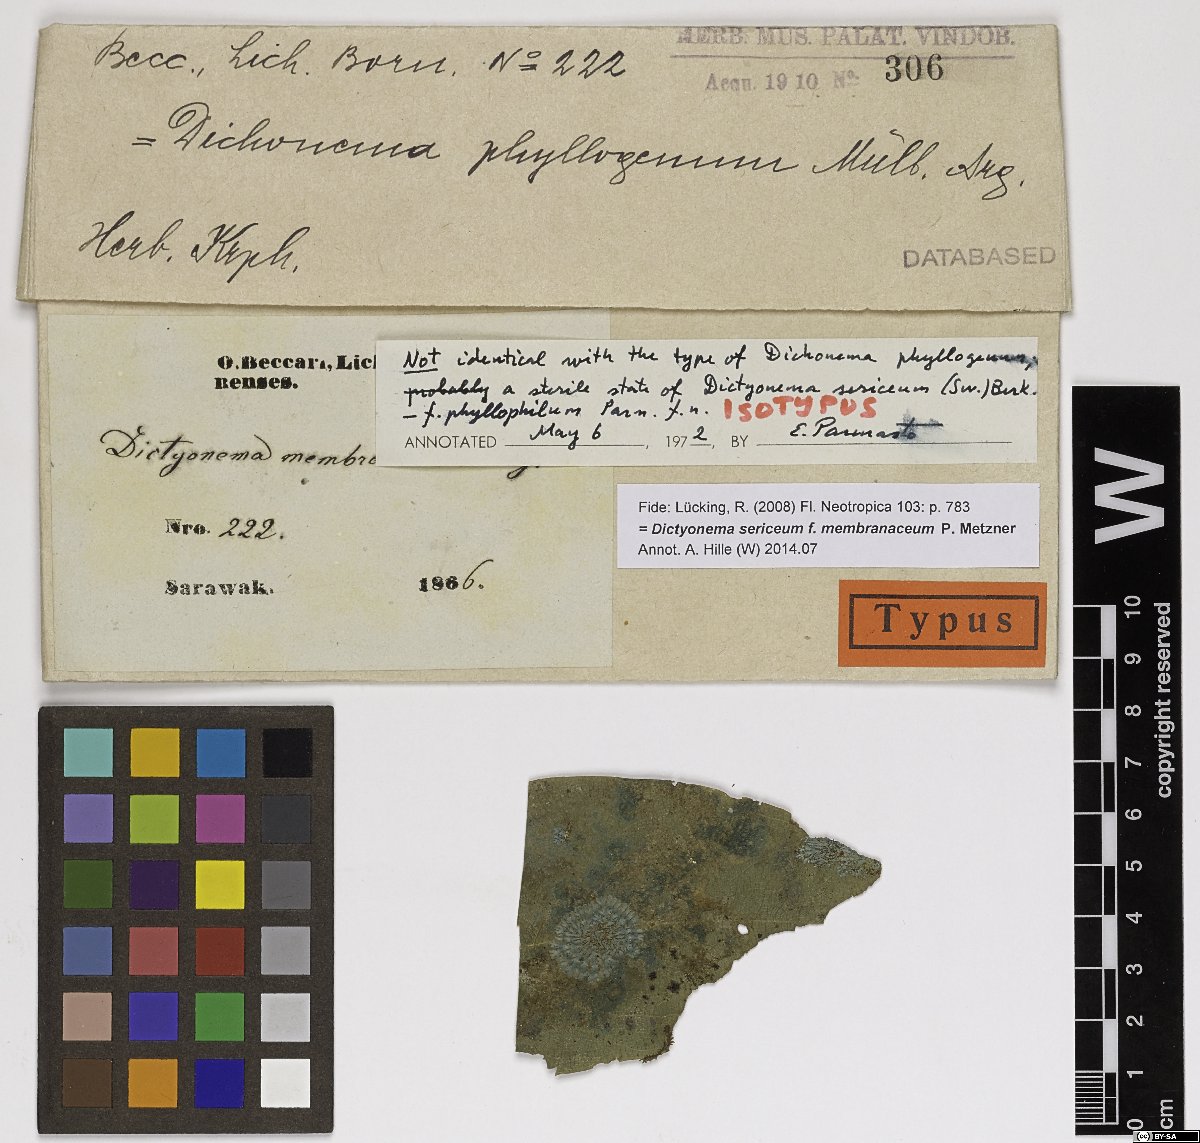 Becc., Lich. Born. No 222
HERB. MUS. PALAT. VINDOB.
Acqu. 1910 No. 306
= Dichonema phyllogenum Müll. Arg.
Herb. Krph.
DATABASED
O. Beccari, Lich
nenses.
Dictyonema membra
Nro. 222.
Sarawak. 1866.
Not identical with the type of Dichonema phyllogenum,
probably a sterile state of Dictyonema sericeum (Sw.) Berk.
– f. phyllophilum Parm. f. n. ISOTYPUS
ANNOTATED May 6, 1972, BY E. Parmasto
Fide: Lücking, R. (2008) Fl. Neotropica 103: p. 783
= Dictyonema sericeum f. membranaceum P. Metzner
Annot. A. Hille (W) 2014.07
Typus
W
copyright reserved
10
9
8
7
6
5
4
3
2
1
0
cm
CC BY-SA